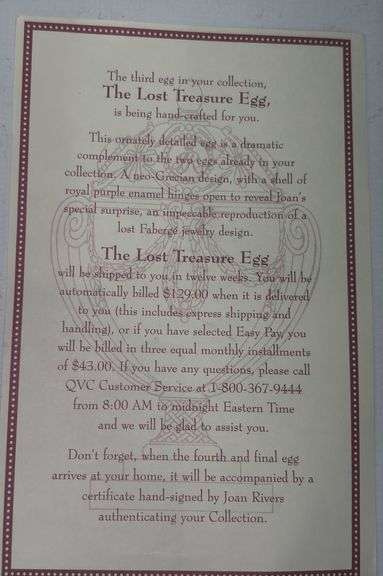 The third egg in your collection,
The Lost Treasure Egg,
is being hand-crafted for you.
This ornately detailed egg is a dramatic
complement to the two eggs already in your
collection. A neo-Grecian design, with a shell of
royal purple enamel hinges open to reveal Joan's
special surprise, an impeccable reproduction of a
lost Fabergé jewelry design.
The Lost Treasure Egg
will be shipped to you in twelve weeks. You will be
automatically billed $129.00 when it is delivered
to you (this includes express shipping and
handling), or if you have selected Easy Pay, you
will be billed in three equal monthly installments
of $43.00. If you have any questions, please call
QVC Customer Service at 1-800-367-9444
from 8:00 AM to midnight Eastern Time
and we will be glad to assist you.
Don't forget, when the fourth and final egg
arrives at your home, it will be accompanied by a
certificate hand-signed by Joan Rivers
authenticating your Collection.